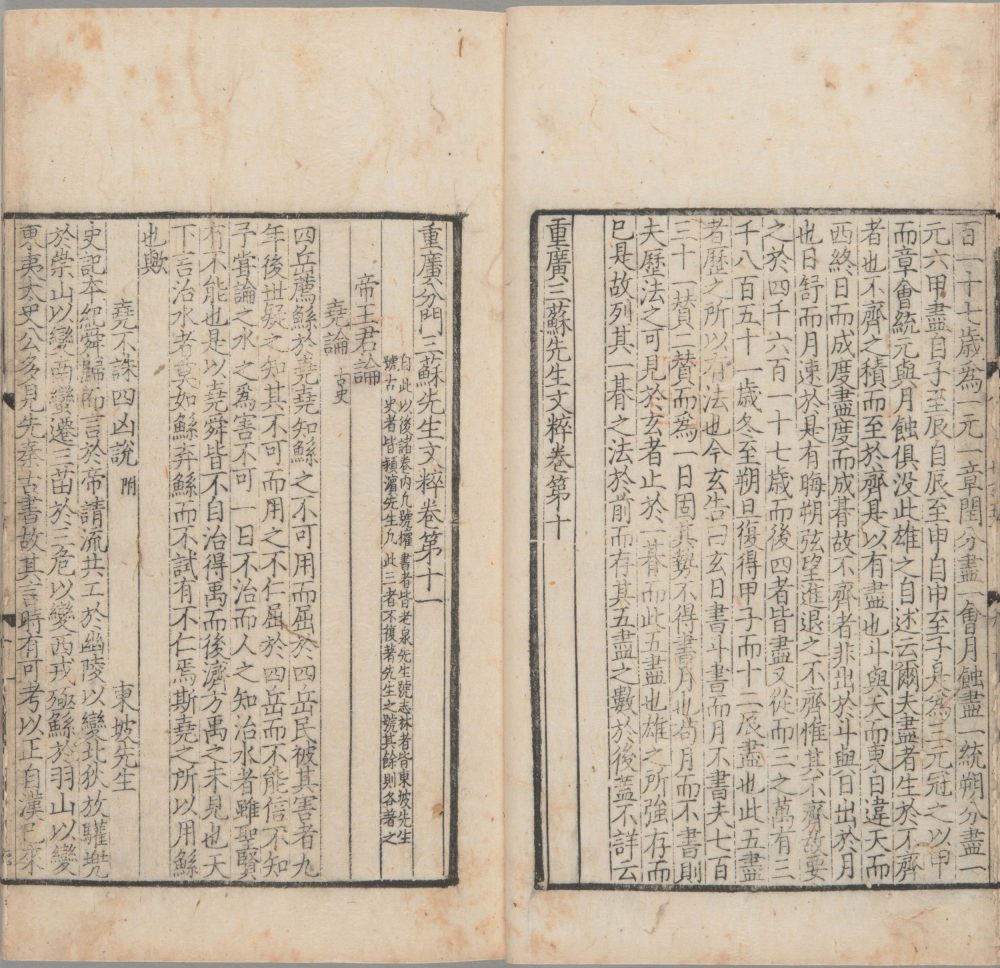 百一十七歲為一元一章閏分盡一會月蝕盡一統朔分盡一
元六甲盡自子至辰自辰至申自申至子是為三元冠之以甲
而章會統元與月蝕俱没此雄之自述云爾夫盡者生於不齊
者也不齊之積而至於齊是以有盡也斗與天而東日違天而
西終日而成度盡度而成朞故不齊者非出於斗與日出於月
也日舒而月速於是有晦朔弦望進退之不齊惟其不齊故要
之於四千六百一十七歲而後四者皆盡又從而三之萬有三
千八百五十一歲冬至朔旦復得甲子而十二辰盡也此五盡
者歷之所以有法也今玄告曰玄日書斗書而月不書夫七百
三十一贊二贊而為一日固其勢不得書月也苟月而不書則
夫歷法之可見於玄者止於一朞而此五盡也雄之所強存而
已是故列其一朞之法於前而存其五盡之數於後蓋不詳云
重廣三蘇先生文粹卷第十
重廣分門三蘇先生文粹卷第十一
自此以後諸卷内凡號權書者皆老泉先生號志林者皆東坡先生
號古史者皆頴濵先生凡此三者不復著先生之號其餘則各著之
帝王君論
堯論 古史
四岳薦鯀於堯堯知鯀之不可用而屈於四岳民被其害者九
年後世疑之知其不可而用之不仁屈於四岳而不能信不知
予嘗論之水之為害不可一日不治而人之知治水者雖聖賢
有不能也是以堯舜皆不自治得禹而後濟方禹之未見也天
下言治水者莫如鯀弃鯀而不試有不仁焉斯堯之所以用鯀
也歟
堯不誅四凶說 附 東坡先生
史記本紀舜歸而言於帝請流共工於幽陵以變北狄放驩兜
於崇山以變南蠻遷三苗於三危以變西戎殛鯀於羽山以變
東夷太史公多見先秦古書故其言時有可考以正自漢已來